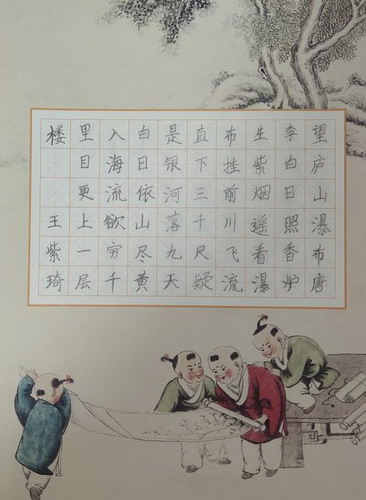 望庐山瀑布唐
李白日照香炉
生紫烟遥看瀑
布挂前川飞流
直下三千尺疑
是银河落九天
白日依山尽黄
入海流欲穷千
里目更上一层
楼 王紫琦